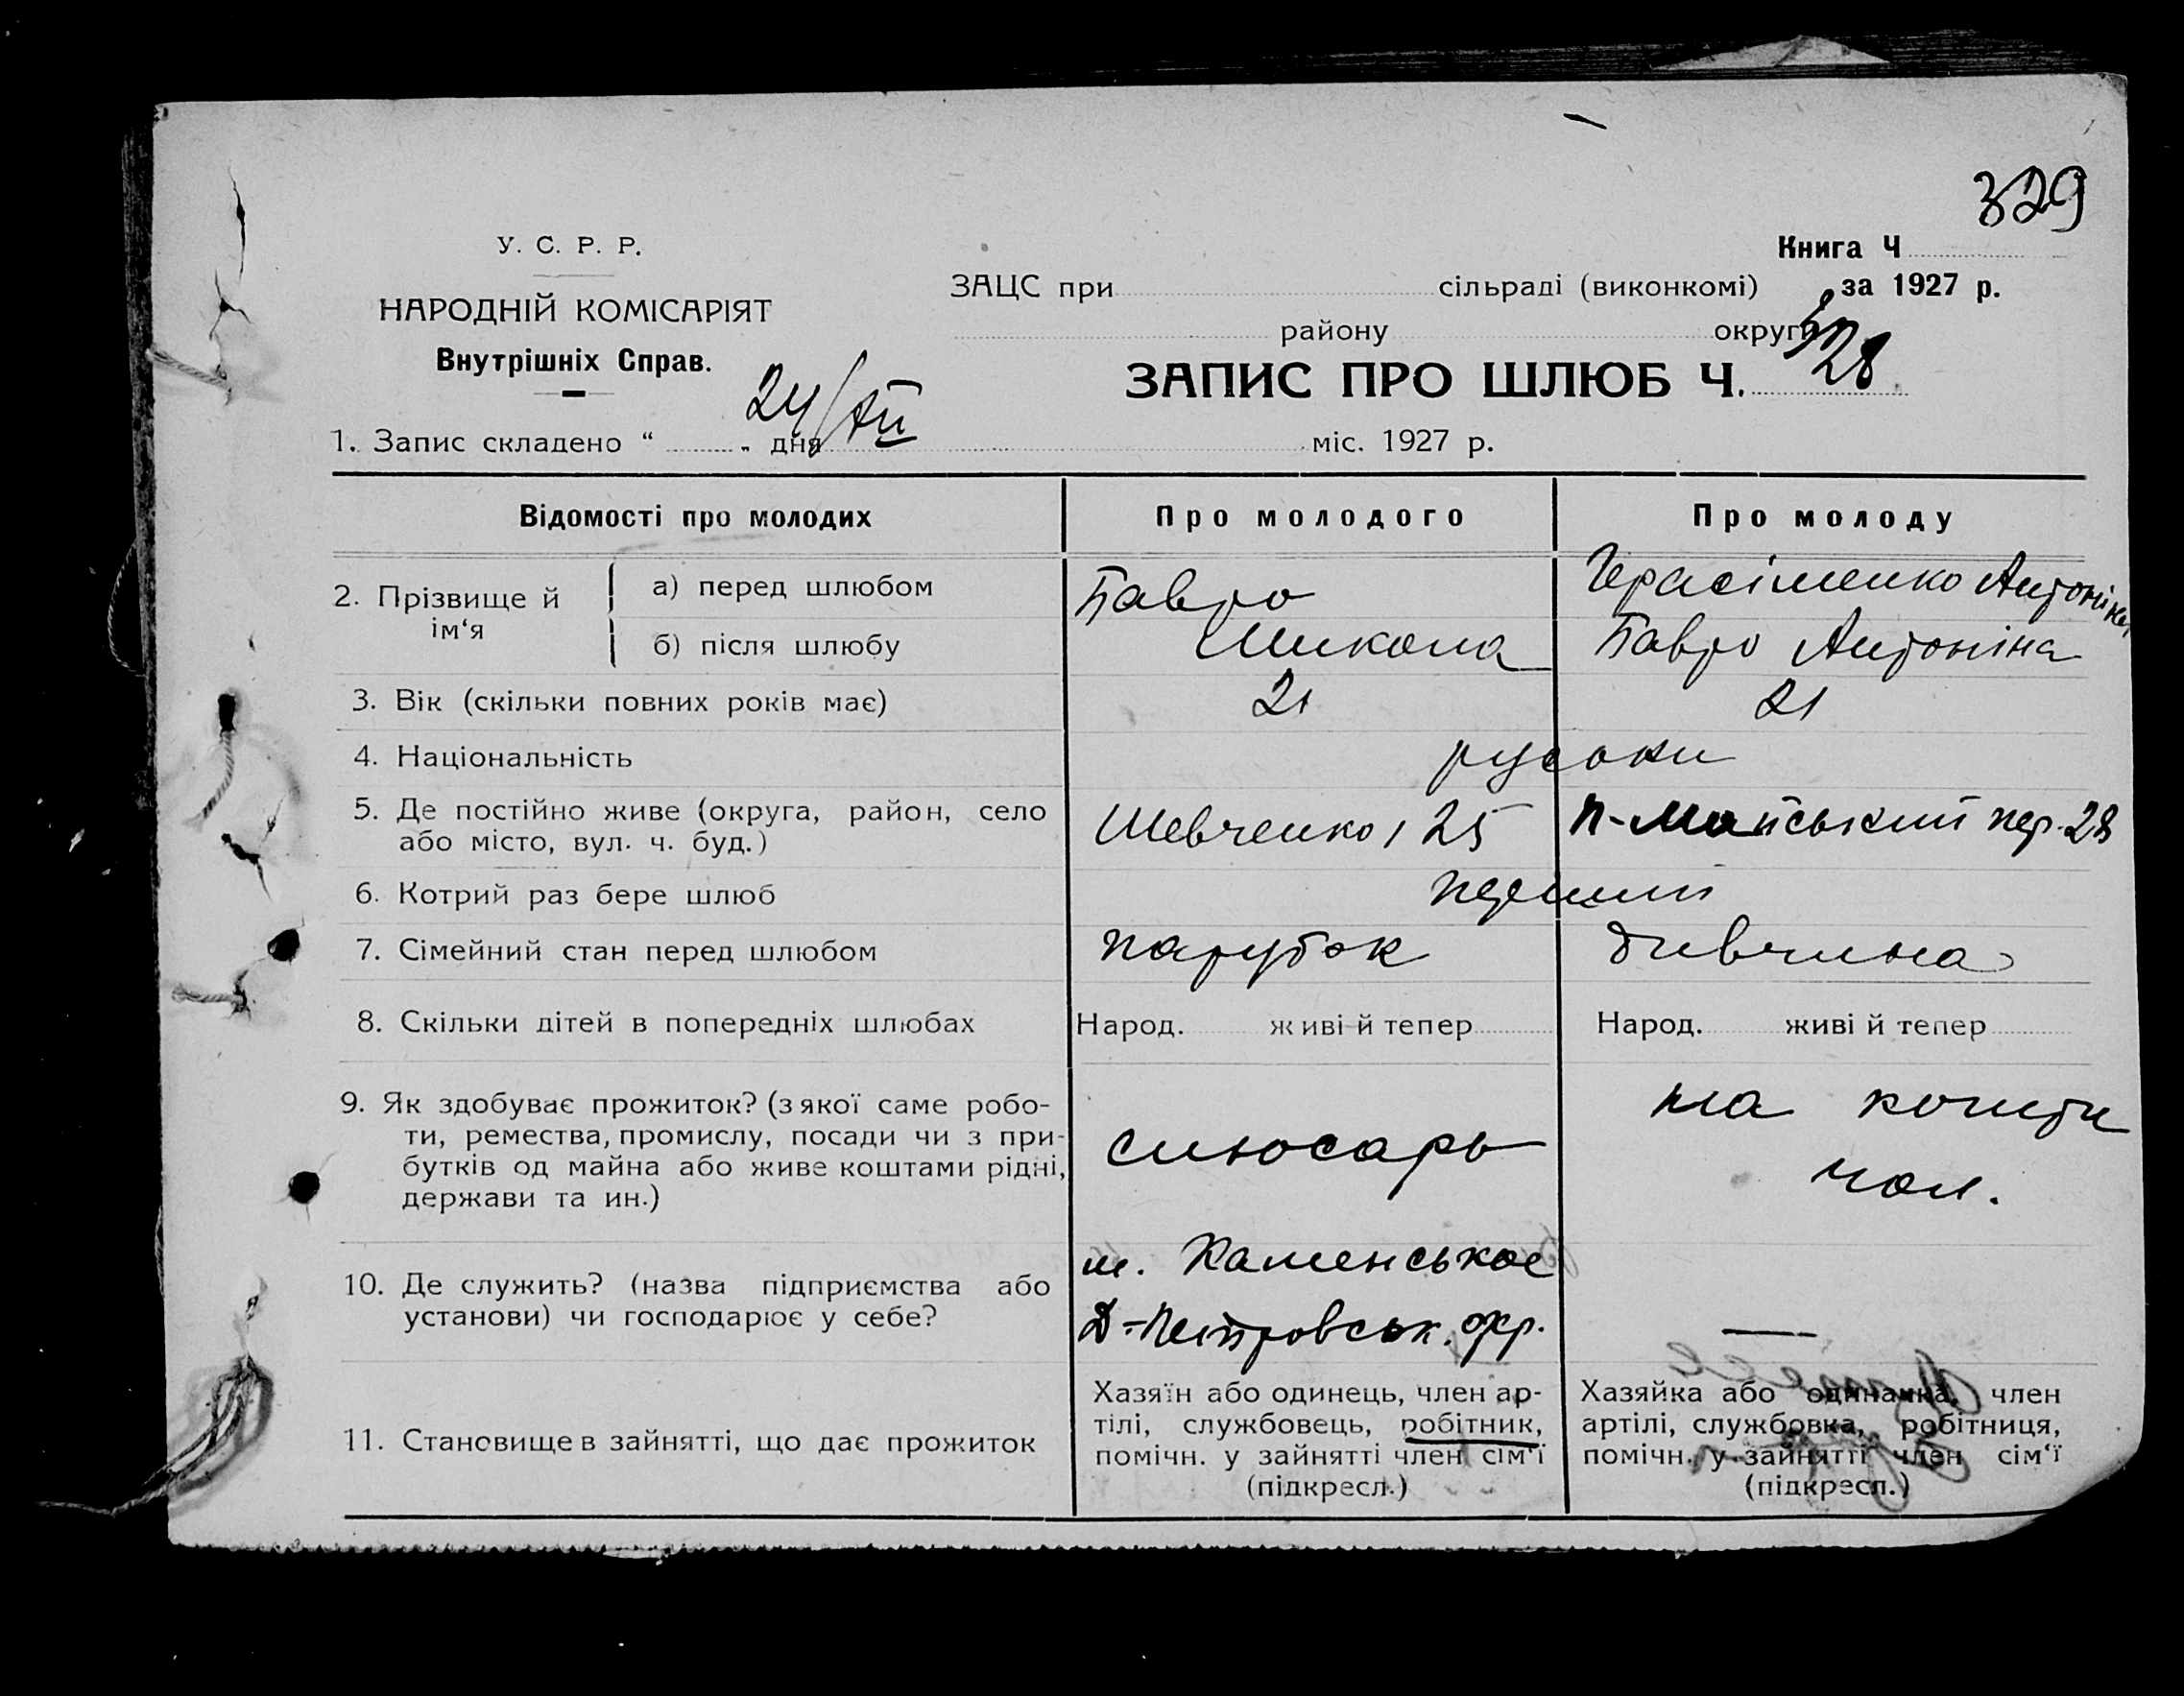 329
У. С. Р. Р.
НАРОДНІЙ КОМІСАРІЯТ
Внутрішніх Справ.
Книга Ч
ЗАЦС при сільраді (виконкомі) за 1927 р.
району округи
ЗАПИС ПРО ШЛЮБ Ч. 528
1. Запис складено “ 24/XII „ дня міс. 1927 р.
Відомості про молодих Про молодого Про молоду
2. Прізвище й ім‘я
а) перед шлюбом Бавро Герасіменко Антоніна
б) після шлюбу Микола Бавро Антоніна
3. Вік (скільки повних років має) 21 21
4. Національність руськи
5. Де постійно живе (округа, район, село
або місто, вул. ч. буд.) Шевченко, 25 П-Майський пер. 28
6. Котрий раз бере шлюб перший
7. Сімейний стан перед шлюбом парубок дивчина
8. Скільки дітей в попередніх шлюбах Народ. живі й тепер Народ. живі й тепер
9. Як здобуває прожиток? (з якої саме робо-
ти, ремества, промислу, посади чи з при-
бутків од майна або живе коштами рідні,
держави та ин.)
слюсарь
на кошти
чол.
10. Де служить? (назва підприємства або
установи) чи господарює у себе?
м. Каменськое
Д-Петровськ. окр.
—
11. Становище в зайнятті, що дає прожиток
Хазяїн або одинець, член ар-
тілі, службовець, робітник,
помічн. у зайнятті член сім‘ї
(підкресл.)
Хазяйка або одиначка, член
артілі, службовка, робітниця,
помічн. у зайнятті член сім‘ї
(підкресл.)